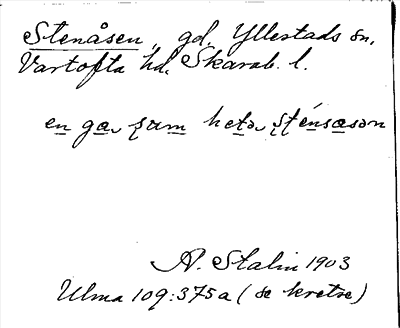 Stenåsen, gd, Yllestads sn,
Vartofta hd, Skarab. l.
en ga, sum hetə, sténsasən
A. Stalin 1903
Ulma 109:375a (se kretse)